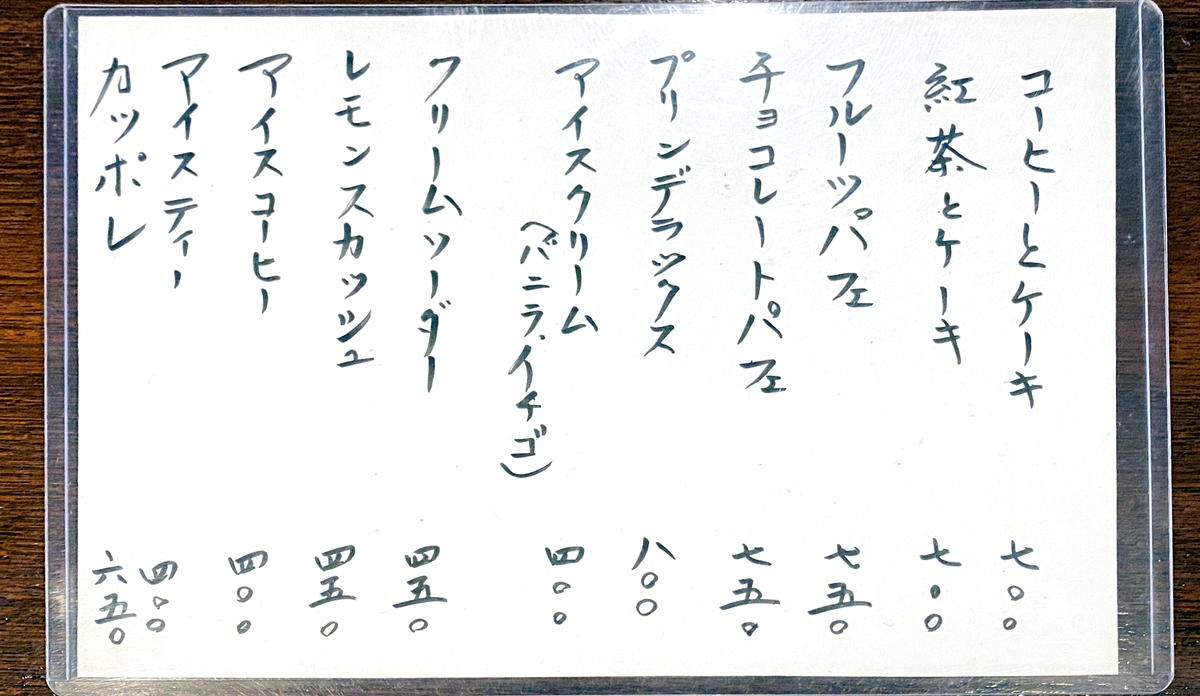 コーヒーとケーキ 七〇〇
紅茶とケーキ 七〇〇
フルーツパフェ 七五〇
チョコレートパフェ 七五〇
プリンデラックス 八〇〇
アイスクリーム 四〇〇
(バニラ、イチゴ)
クリームソーダー 四五〇
レモンスカッシュ 四五〇
アイスコーヒー 四〇〇
アイスティー 四〇〇
カッポレ 六五〇